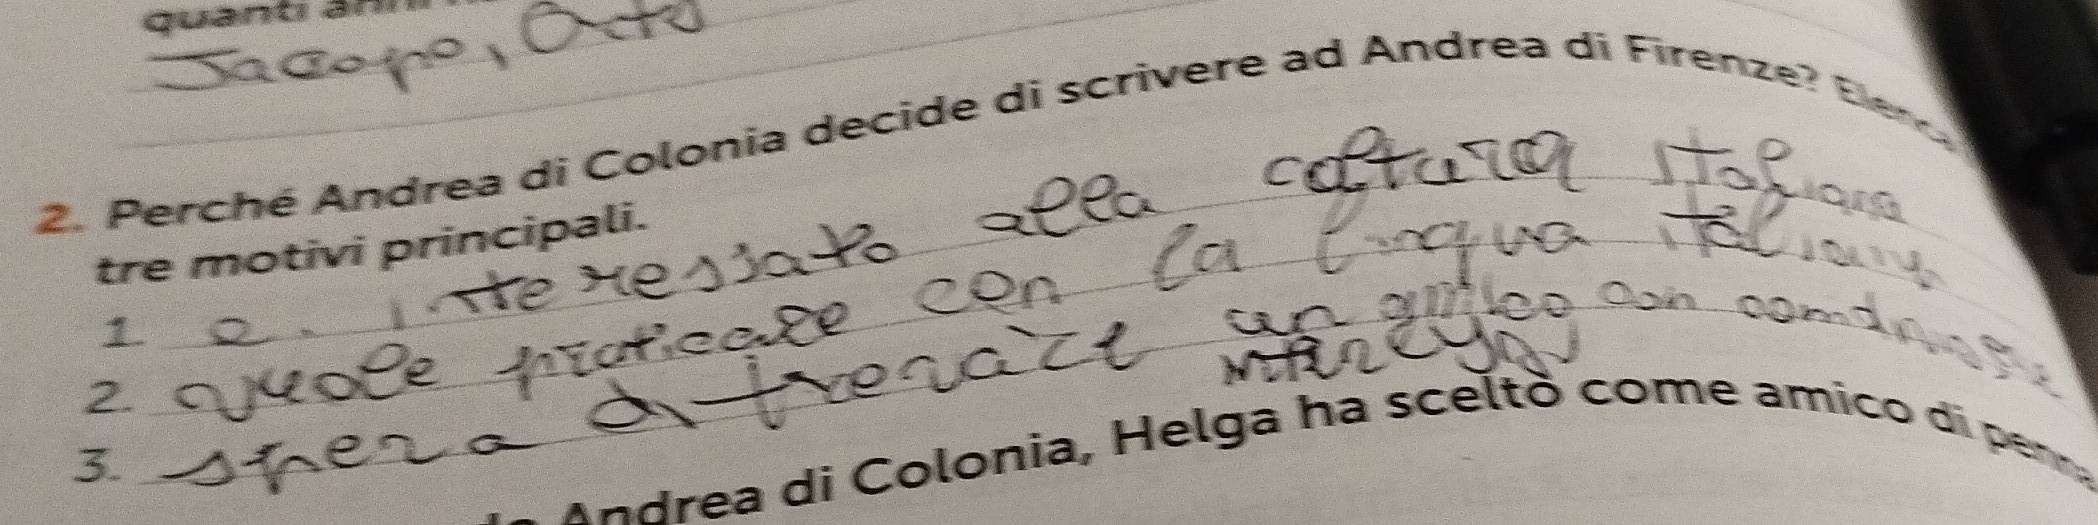 quanti anni
Jacopo, Otto
2. Perché Andrea di Colonia decide di scrivere ad Andrea di Firenze? Elenca
tre motivi principali.
1 e interessato alla coltura italiana
2. vuole praticare con la lingua italiana
3. spera di trovare un amico con
Andrea di Colonia, Helga ha scelto come amico di penna